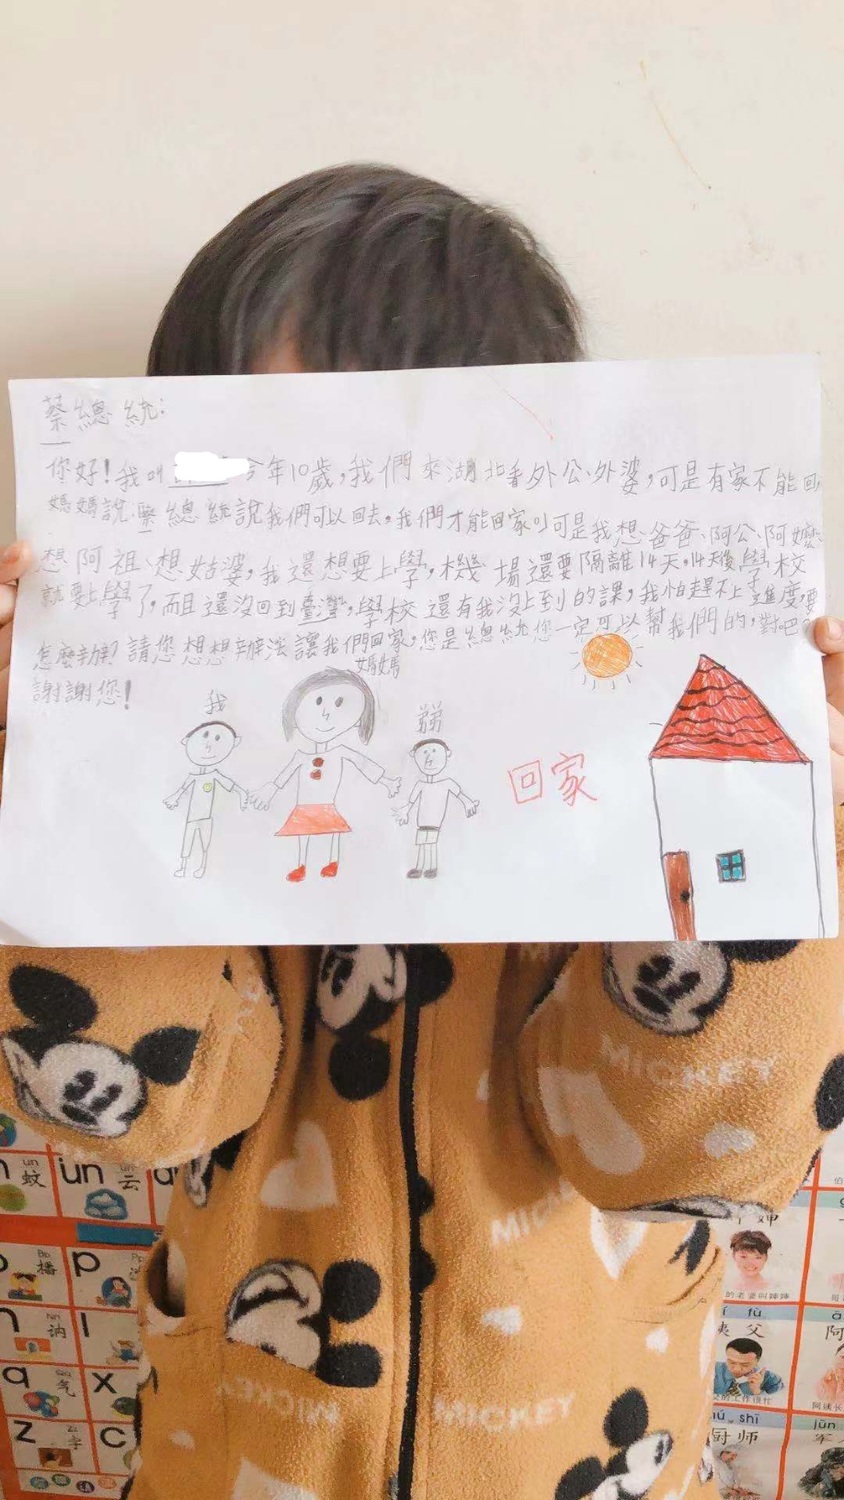 蔡總統:
你好!我叫 今年10歲,我們來湖北看外公、外婆,可是有家不能回,
媽媽說:蔡總統說我們可以回去,我們才能回家。可是我想爸爸、阿公、阿嬤、
想阿祖、想姑婆,我還想要上學,機場還要隔離14天,14天後,學校
就要上學了,而且還沒回到臺灣,學校還有我沒上到的課,我怕趕不上進度,要
怎麼辦?請您想想辦法讓我們回家,您是總統您一定可以幫我們的,對吧?
謝謝您!
媽媽
我
弟弟
回家
MICKEY
MICKEY
MICKEY
un
蚊
ün
云
p
播
讷
l
q
气
x
z
字
c
父
fù
厨师
shī
阿
jūn
军